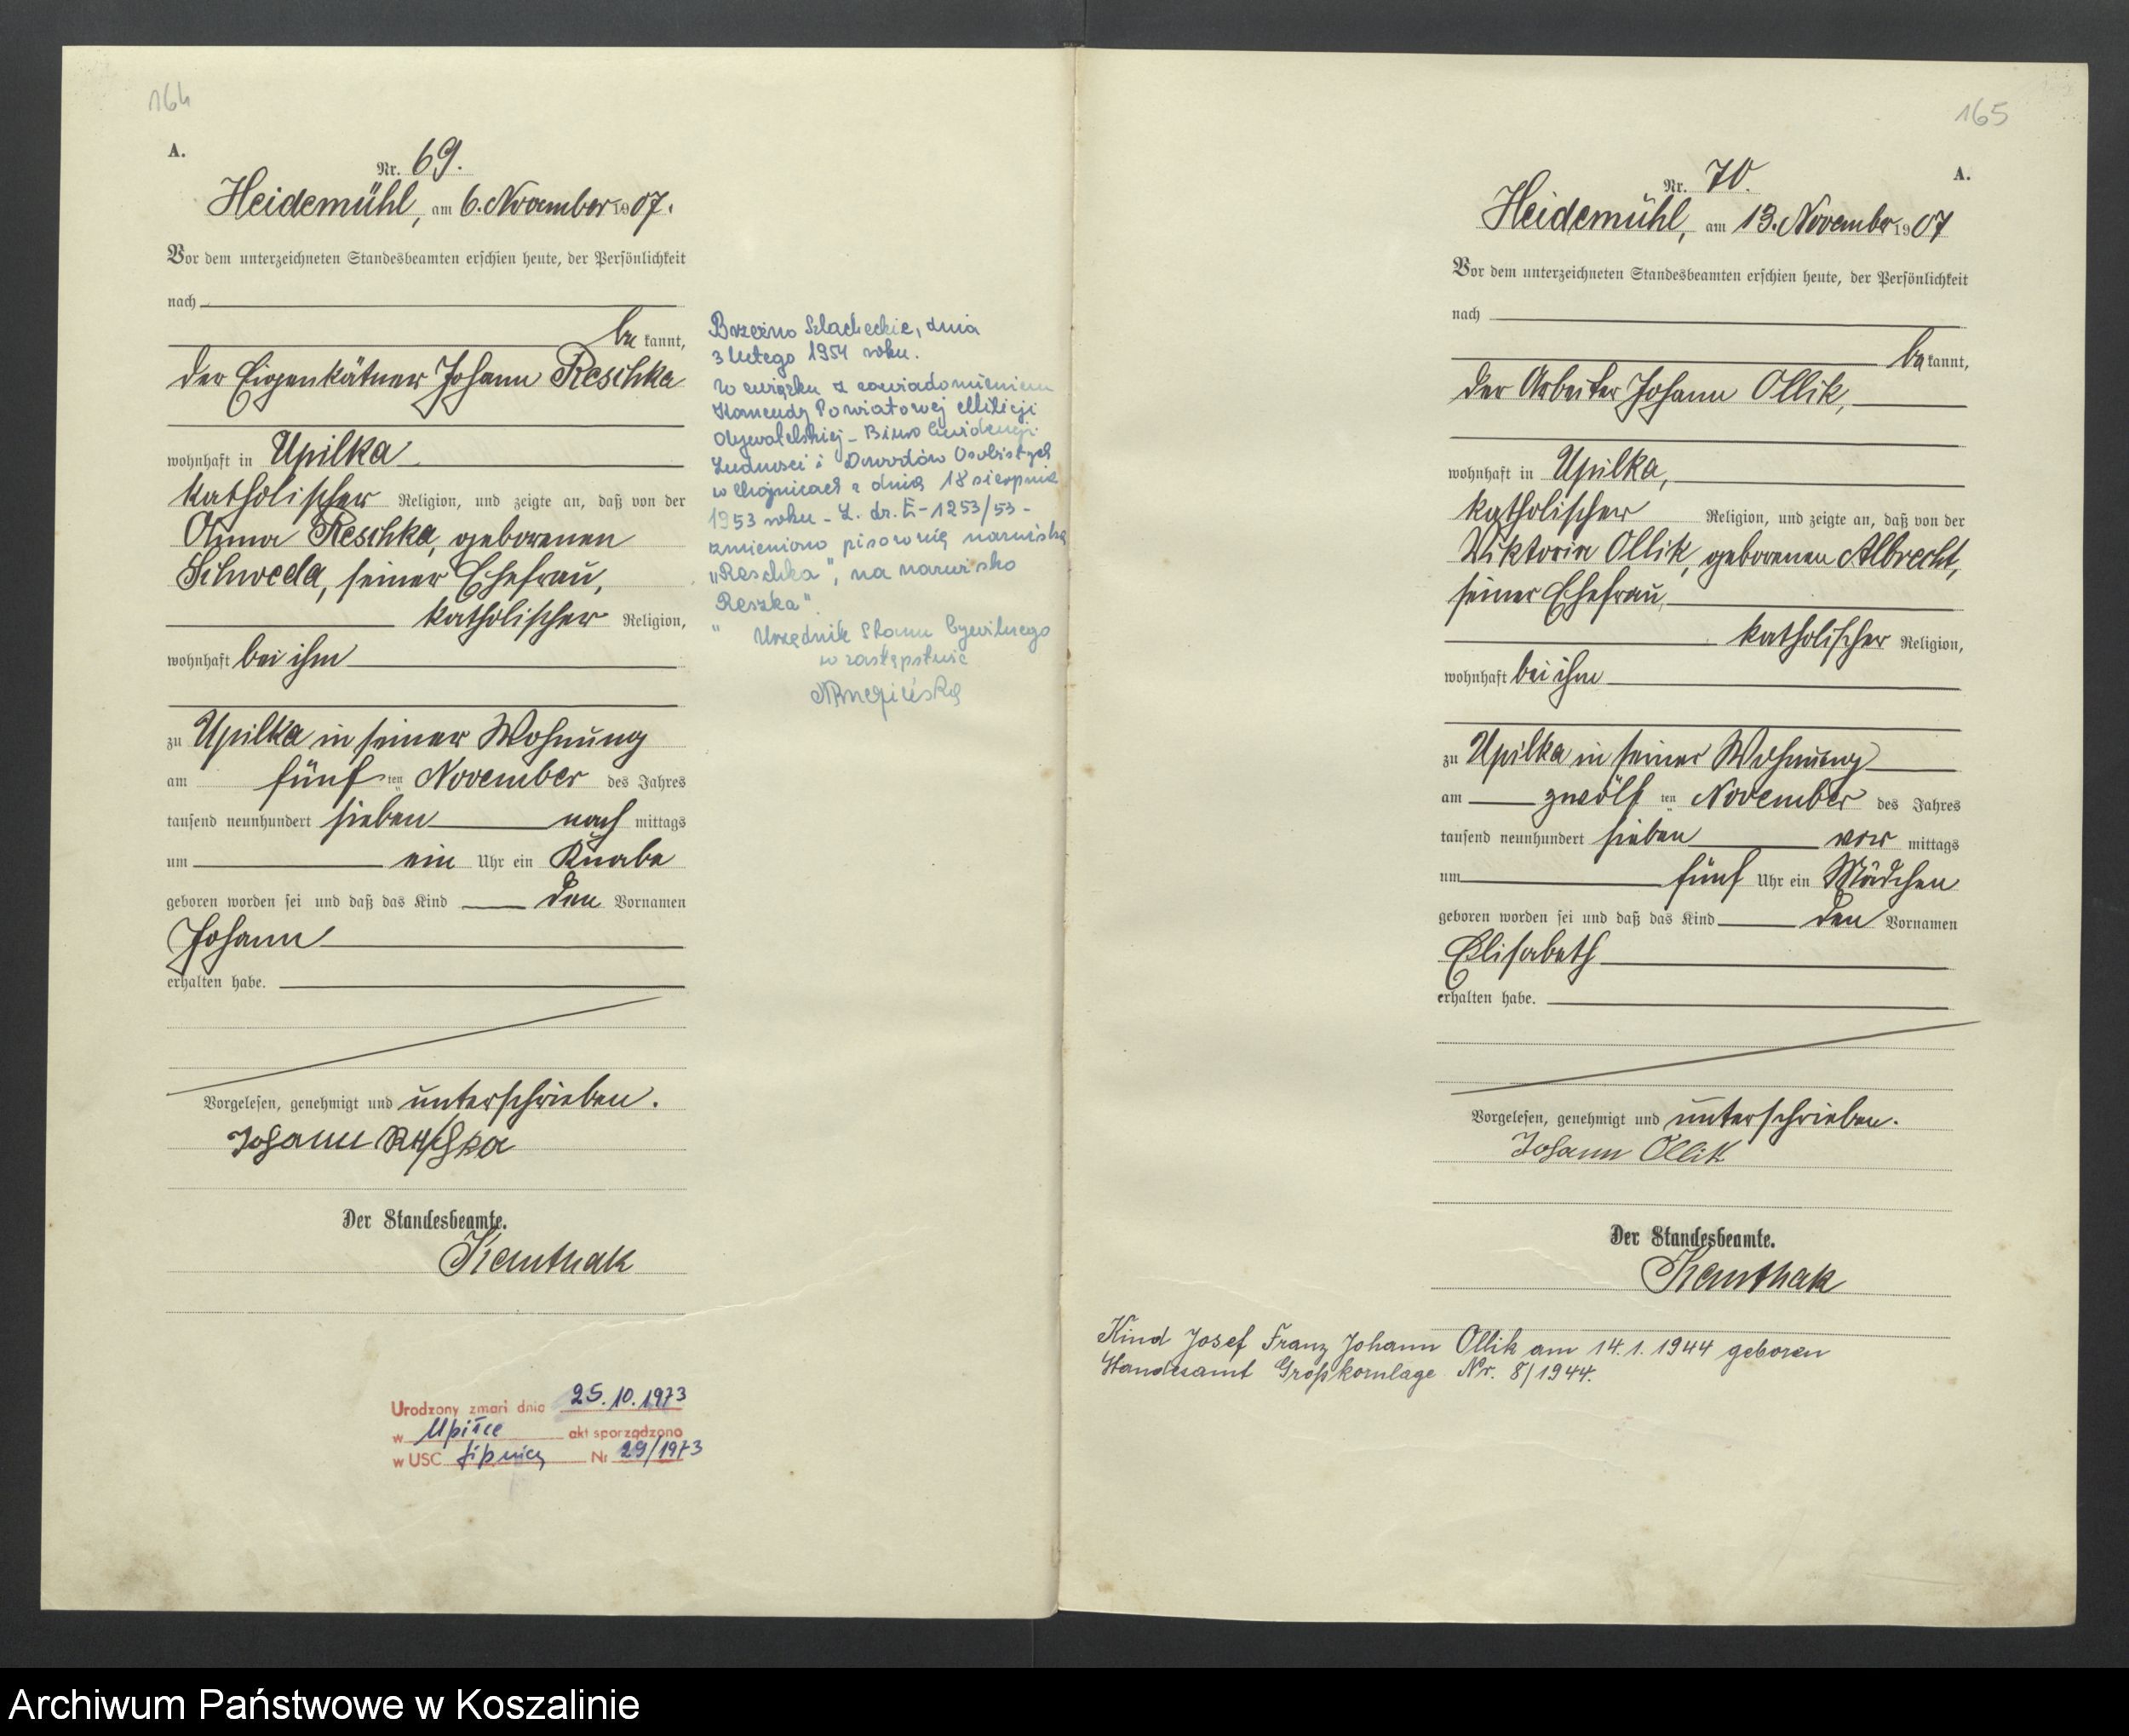 164
A.
Nr. 69.
Heidemühl, am 6. November 1907.
Vor dem unterzeichneten Standesbeamten erschien heute, der Persönlichkeit
nach
be kannt,
der Eigenkätner Johann Reschka
wohnhaft in Upilka
katholischer Religion, und zeigte an, daß von der
Anna Reschka, geborenen
Schweda, seiner Ehefrau,
katholischer Religion,
wohnhaft bei ihm
zu Upilka in seiner Wohnung
am fünf ten November des Jahres
tausend neunhundert sieben nach mittags
um ein Uhr ein Knabe
geboren worden sei und daß das Kind den Vornamen
Johann
erhalten habe.
Vorgelesen, genehmigt und unterschrieben.
Johann Reschka
Der Standesbeamte.
Kauthak
Brzeźno Szlacheckie, dnia
3 lutego 1954 roku.
W związku z zawiadomieniem
Komendy Powiatowej Milicji
Obywatelskiej - Biuro Ewidencji
Ludności i Dowodów Osobistych
w Chojnicach z dnia 18 sierpnia
1953 roku - L. dz. E-1253/53 -
zmieniono pisownię nazwiska
„Reschka", na nazwisko
„Reszka".
Urzędnik Stanu Cywilnego
w zastępstwie
Urodzony zmarł dnia 25.10.1973
w Upiłce akt sporządzono
w USC Lipnica Nr 29/1973
165
A.
Nr. 70.
Heidemühl, am 13. November 1907
Vor dem unterzeichneten Standesbeamten erschien heute, der Persönlichkeit
nach
be kannt,
der Arbeiter Johann Ollik,
wohnhaft in Upilka,
katholischer Religion, und zeigte an, daß von der
Viktoria Ollik, geborenen Albrecht,
seiner Ehefrau,
katholischer Religion,
wohnhaft bei ihm
zu Upilka in seiner Wohnung
am zwölf ten November des Jahres
tausend neunhundert sieben vor mittags
um fünf Uhr ein Mädchen
geboren worden sei und daß das Kind den Vornamen
Elisabeth
erhalten habe.
Vorgelesen, genehmigt und unterschrieben.
Johann Ollik
Der Standesbeamte.
Kauthak
Kind Josef Franz Johann Ollik am 14.1.1944 geboren
Standesamt Großkornlage Nr. 8/1944.
Archiwum Państwowe w Koszalinie